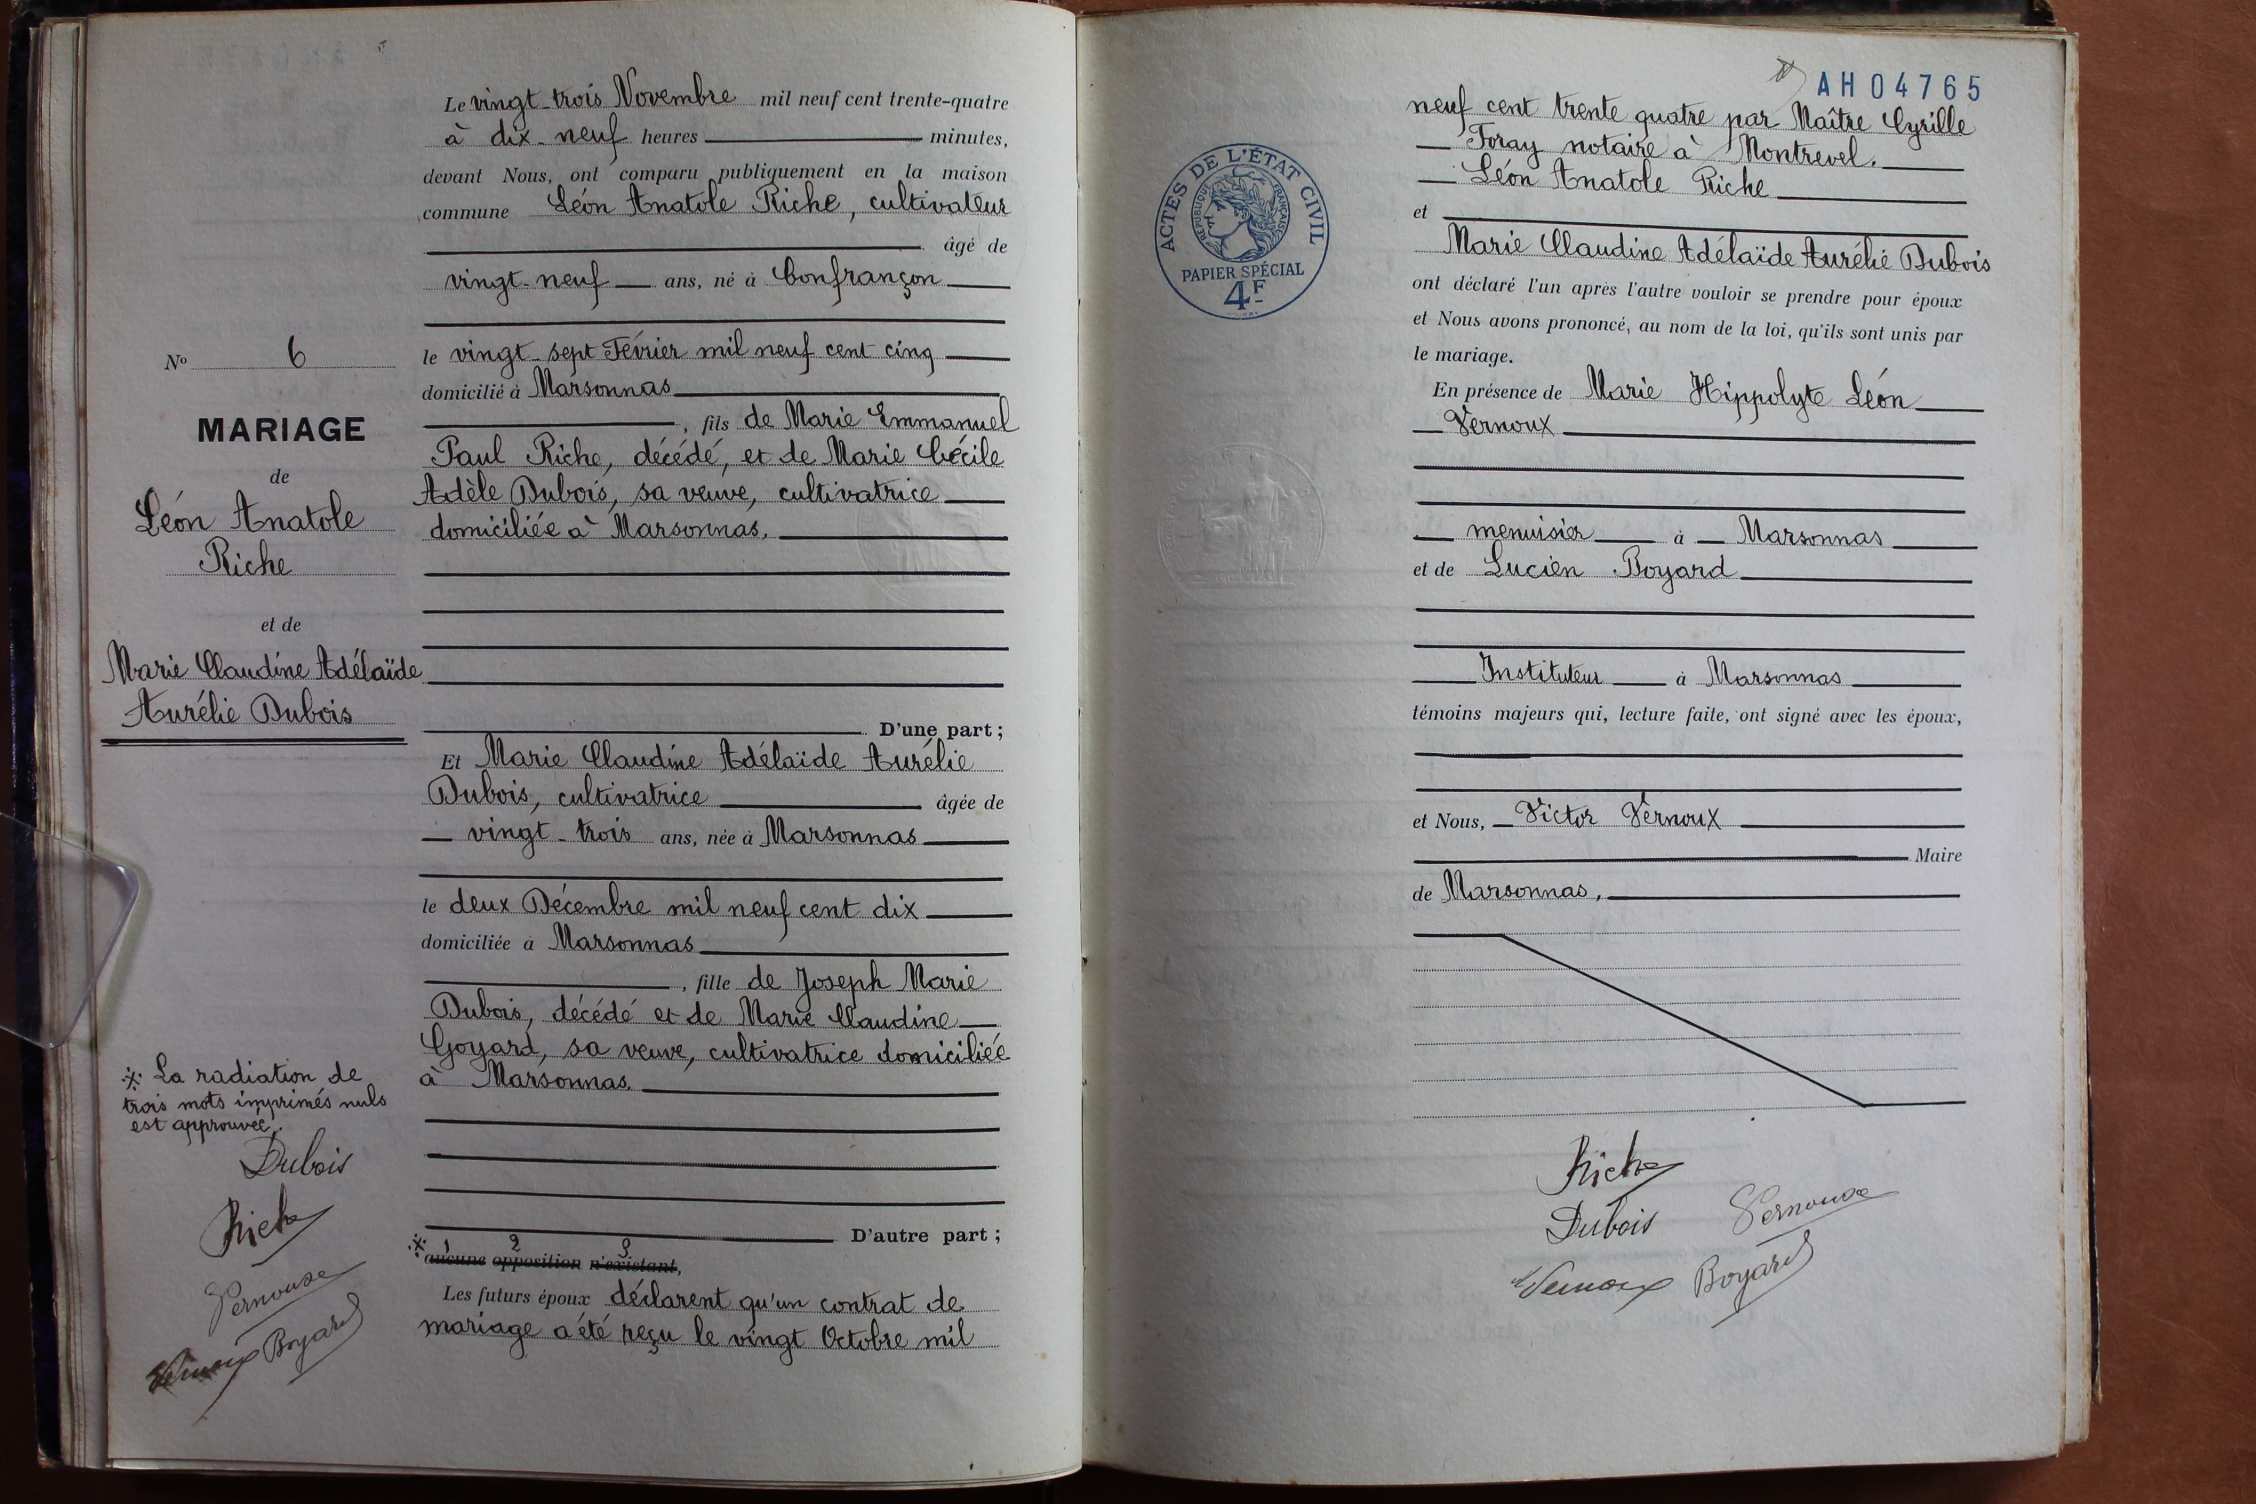 N° 6
MARIAGE
de
Léon Anatole
Riche
et de
Marie Claudine Adélaïde
Aurélie Dubois
※ La radiation de
trois mots imprimés nuls
est approuvée.
Dubois
Riche
Vernoux
Vernoux Boyard
Le vingt-trois Novembre mil neuf cent trente-quatre
à dix-neuf heures minutes,
devant Nous, ont comparu publiquement en la maison
commune Léon Anatole Riche, cultivateur
âgé de
vingt-neuf ans, né à Confrançon
le vingt-sept Février mil neuf cent cinq
domicilié à Marsonnas
, fils de Marie Emmanuel
Paul Riche, décédé, et de Marie Cécile
Adèle Dubois, sa veuve, cultivatrice
domiciliée à Marsonnas.
D'une part ;
Et Marie Claudine Adélaïde Aurélie
Dubois, cultivatrice âgée de
vingt-trois ans, née à Marsonnas
le deux Décembre mil neuf cent dix
domiciliée à Marsonnas
, fille de Joseph Marie
Dubois, décédé et de Marie Claudine
Goyard, sa veuve, cultivatrice domiciliée
à Marsonnas.
D'autre part ;
※ 1 2 3
aucune opposition n'existant,
Les futurs époux déclarent qu'un contrat de
mariage a été reçu le vingt Octobre mil
AH04765
ACTES DE L'ÉTAT CIVIL
RÉPUBLIQUE FRANÇAISE
PAPIER SPÉCIAL
4F
neuf cent trente quatre par Maître Cyrille
Foray notaire à Montrevel.
Léon Anatole Riche
et
Marie Claudine Adélaïde Aurélie Dubois
ont déclaré l'un après l'autre vouloir se prendre pour époux
et Nous avons prononcé, au nom de la loi, qu'ils sont unis par
le mariage.
En présence de Marie Hippolyte Léon
Vernoux
menuisier à Marsonnas
et de Lucien Boyard
Instituteur à Marsonnas
témoins majeurs qui, lecture faite, ont signé avec les époux,
et Nous, Victor Vernoux
Maire
de Marsonnas,
Riche
Dubois Vernoux
Vernoux Boyard